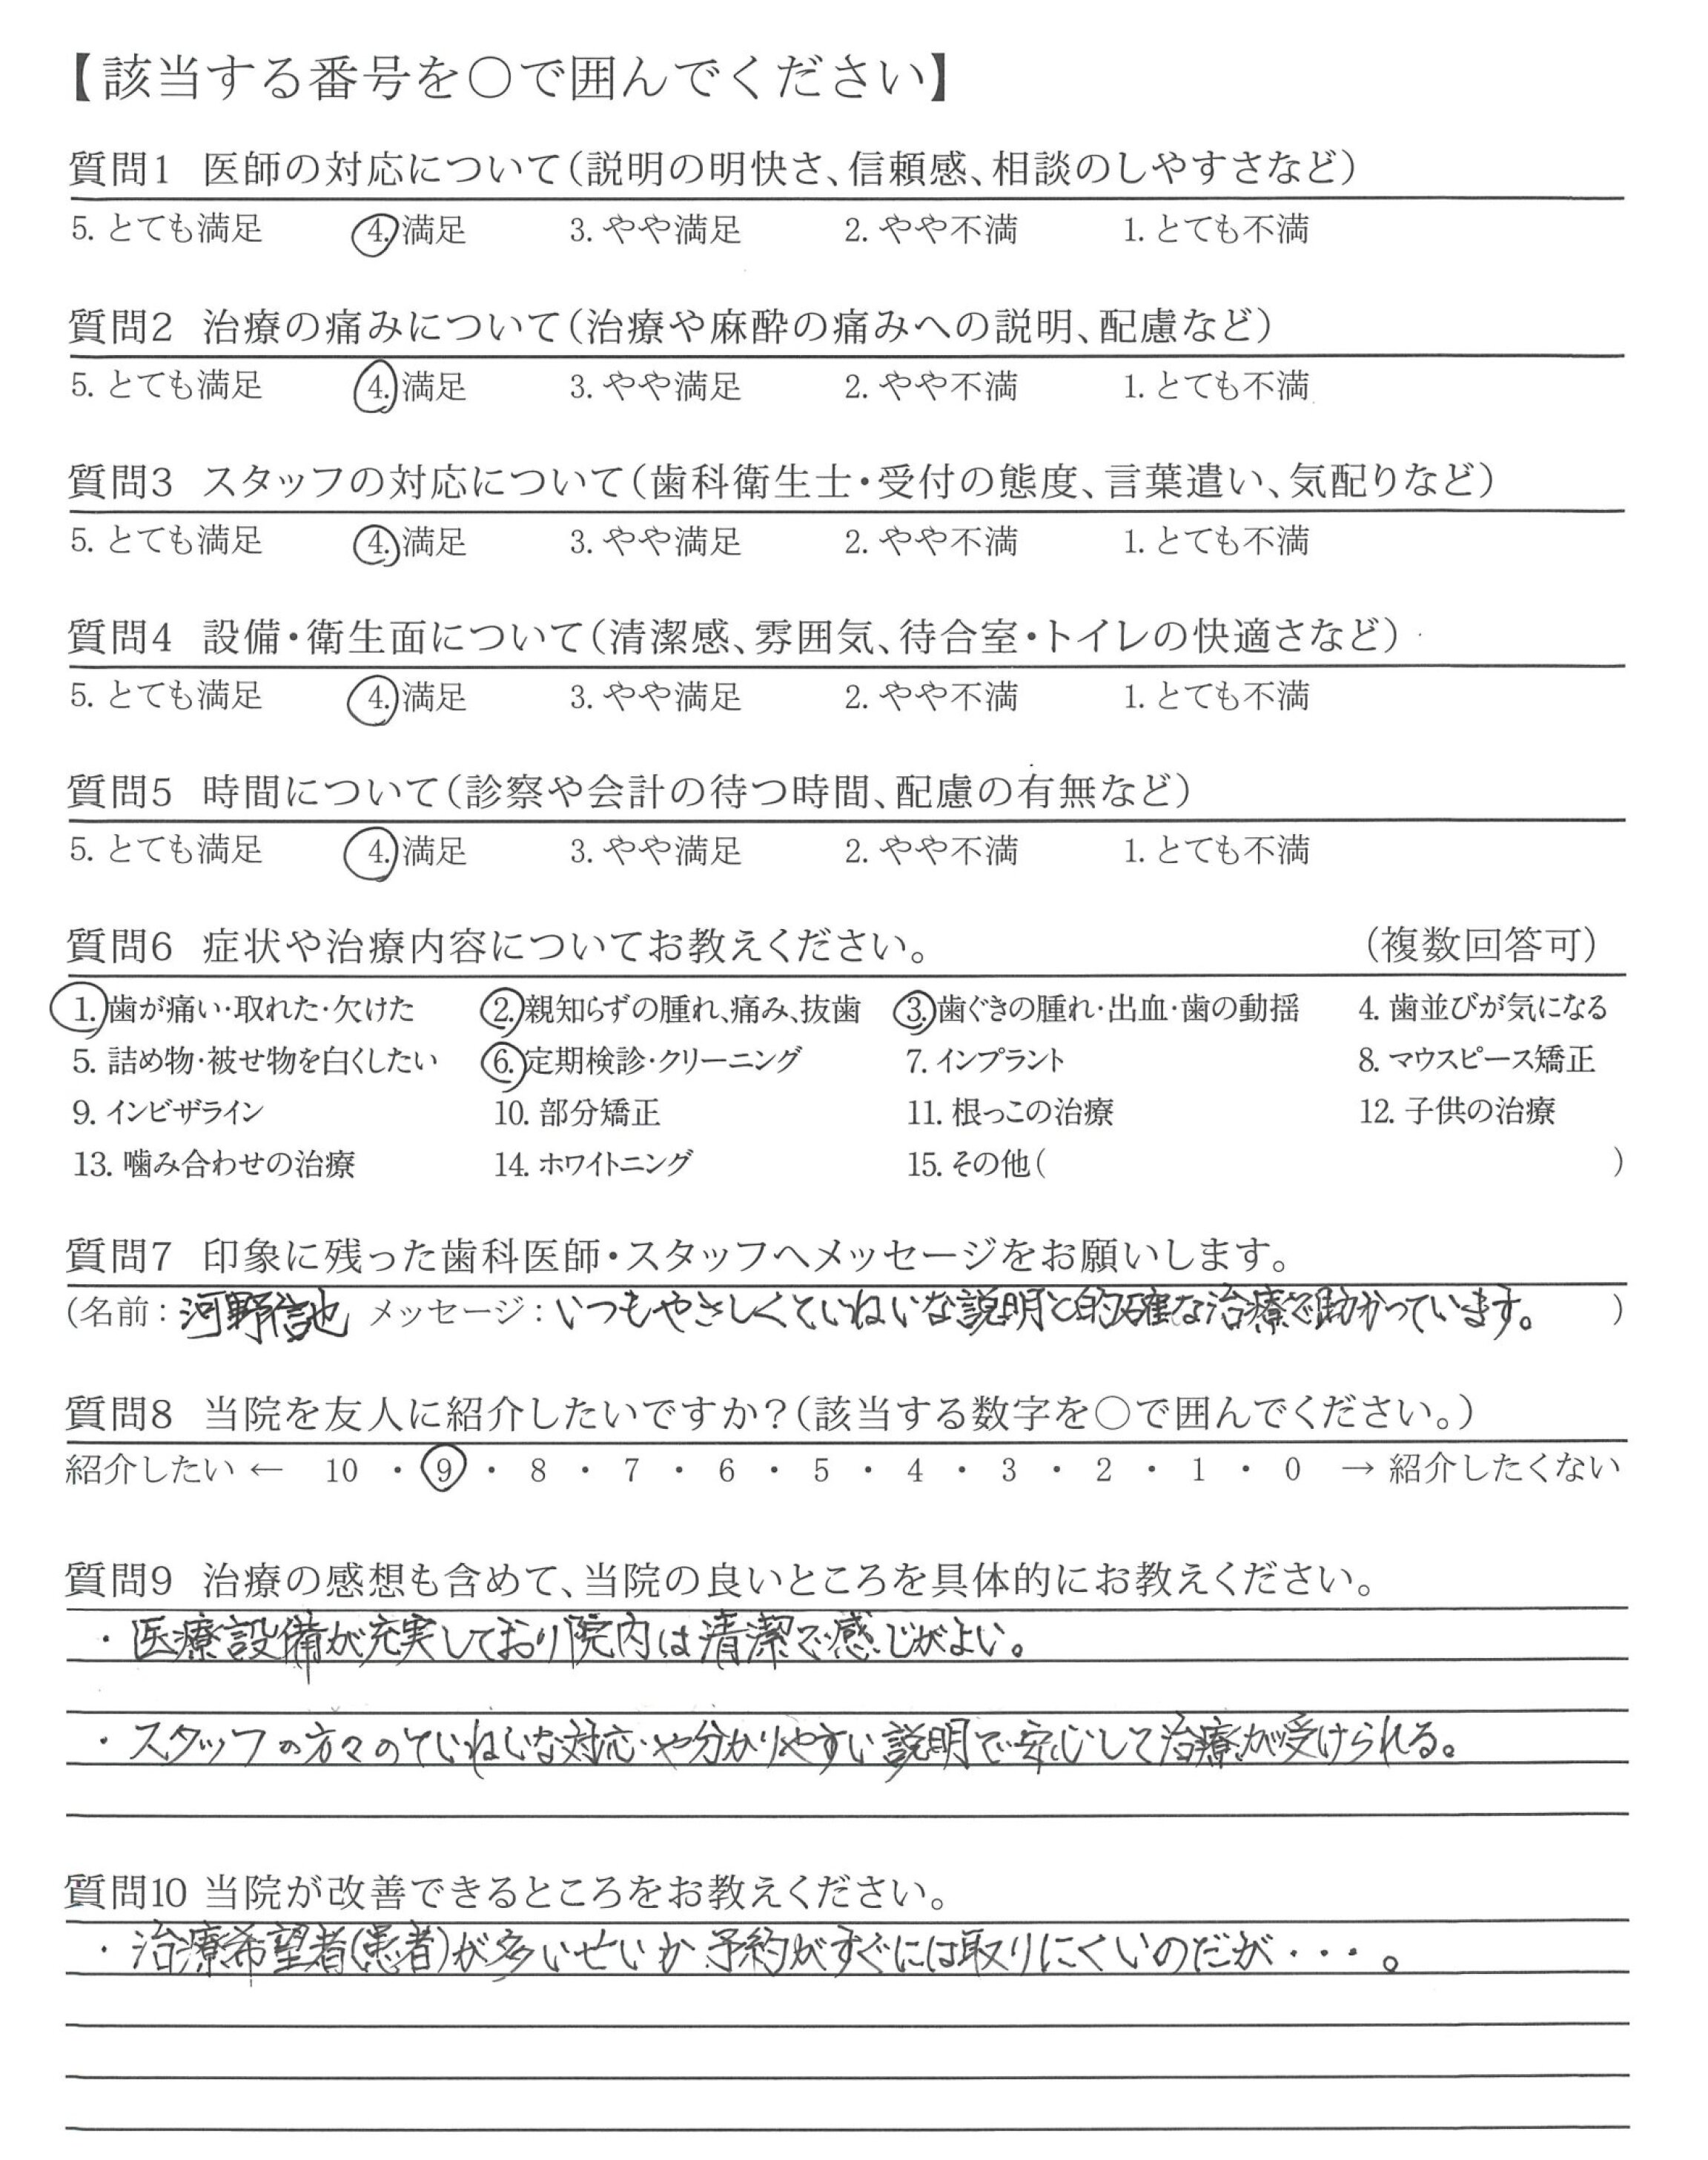 【該当する番号を○で囲んでください】
質問1 医師の対応について(説明の明快さ、信頼感、相談のしやすさなど)
5. とても満足 4. 満足 3. やや満足 2. やや不満 1. とても不満
質問2 治療の痛みについて(治療や麻酔の痛みへの説明、配慮など)
5. とても満足 4. 満足 3. やや満足 2. やや不満 1. とても不満
質問3 スタッフの対応について(歯科衛生士・受付の態度、言葉遣い、気配りなど)
5. とても満足 4. 満足 3. やや満足 2. やや不満 1. とても不満
質問4 設備・衛生面について(清潔感、雰囲気、待合室・トイレの快適さなど)
5. とても満足 4. 満足 3. やや満足 2. やや不満 1. とても不満
質問5 時間について(診察や会計の待つ時間、配慮の有無など)
5. とても満足 4. 満足 3. やや満足 2. やや不満 1. とても不満
質問6 症状や治療内容についてお教えください。 (複数回答可)
1. 歯が痛い・取れた・欠けた 2. 親知らずの腫れ、痛み、抜歯 3. 歯ぐきの腫れ・出血・歯の動揺 4. 歯並びが気になる
5. 詰め物・被せ物を白くしたい 6. 定期検診・クリーニング 7. インプラント 8. マウスピース矯正
9. インビザライン 10. 部分矯正 11. 根っこの治療 12. 子供の治療
13. 噛み合わせの治療 14. ホワイトニング 15. その他( )
質問7 印象に残った歯科医師・スタッフへメッセージをお願いします。
(名前：河野信也 メッセージ：いつもやさしくていねいな説明と的確な治療で助かっています。 )
質問8 当院を友人に紹介したいですか？(該当する数字を○で囲んでください。)
紹介したい ← 10 ・ 9 ・ 8 ・ 7 ・ 6 ・ 5 ・ 4 ・ 3 ・ 2 ・ 1 ・ 0 → 紹介したくない
質問9 治療の感想も含めて、当院の良いところを具体的にお教えください。
・医療設備が充実しており院内は清潔で感じがよい。
・スタッフの方々のていねいな対応や分かりやすい説明で安心して治療が受けられる。
質問10 当院が改善できるところをお教えください。
・治療希望者(患者)が多いせいか予約がすぐには取りにくいのだが・・・。